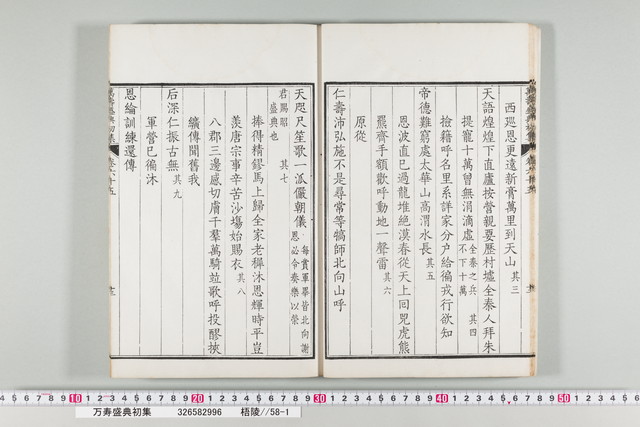 西廵恩更遠新膏萬里到天山 其三
天語煌煌下直廬按營親要歷村墟全秦人拜朱
提寵十萬曾無涓滴虛 全秦之兵不下十萬 其四
按籍呼名里系詳家分户給徧戎行欲知
帝德難窮處太華山高渭水長 其五
恩波直已過龍堆絶漠春從天上回兕虎熊
羆齊手額歡呼動地一聲雷 其六
原從
仁壽沛弘施不是尋常等犒師北向山呼
天咫尺笙歌一派儼朝儀 每賞軍畢皆北向謝恩必令奏樂以榮
君賜昭盛典也 其七
捧得精鏐馬上歸全家老穉沐恩輝時平豈
羨唐宗事辛苦沙場始賜衣 其八
八郡三邊感切膚千羣萬騎竝歌呼投醪挾
纊傳聞舊我
后深仁振古無 其九
軍營已徧沐
恩綸訓練還傳
10
20
30
40
50
万寿盛典初集 326582996 梧陵//58-1